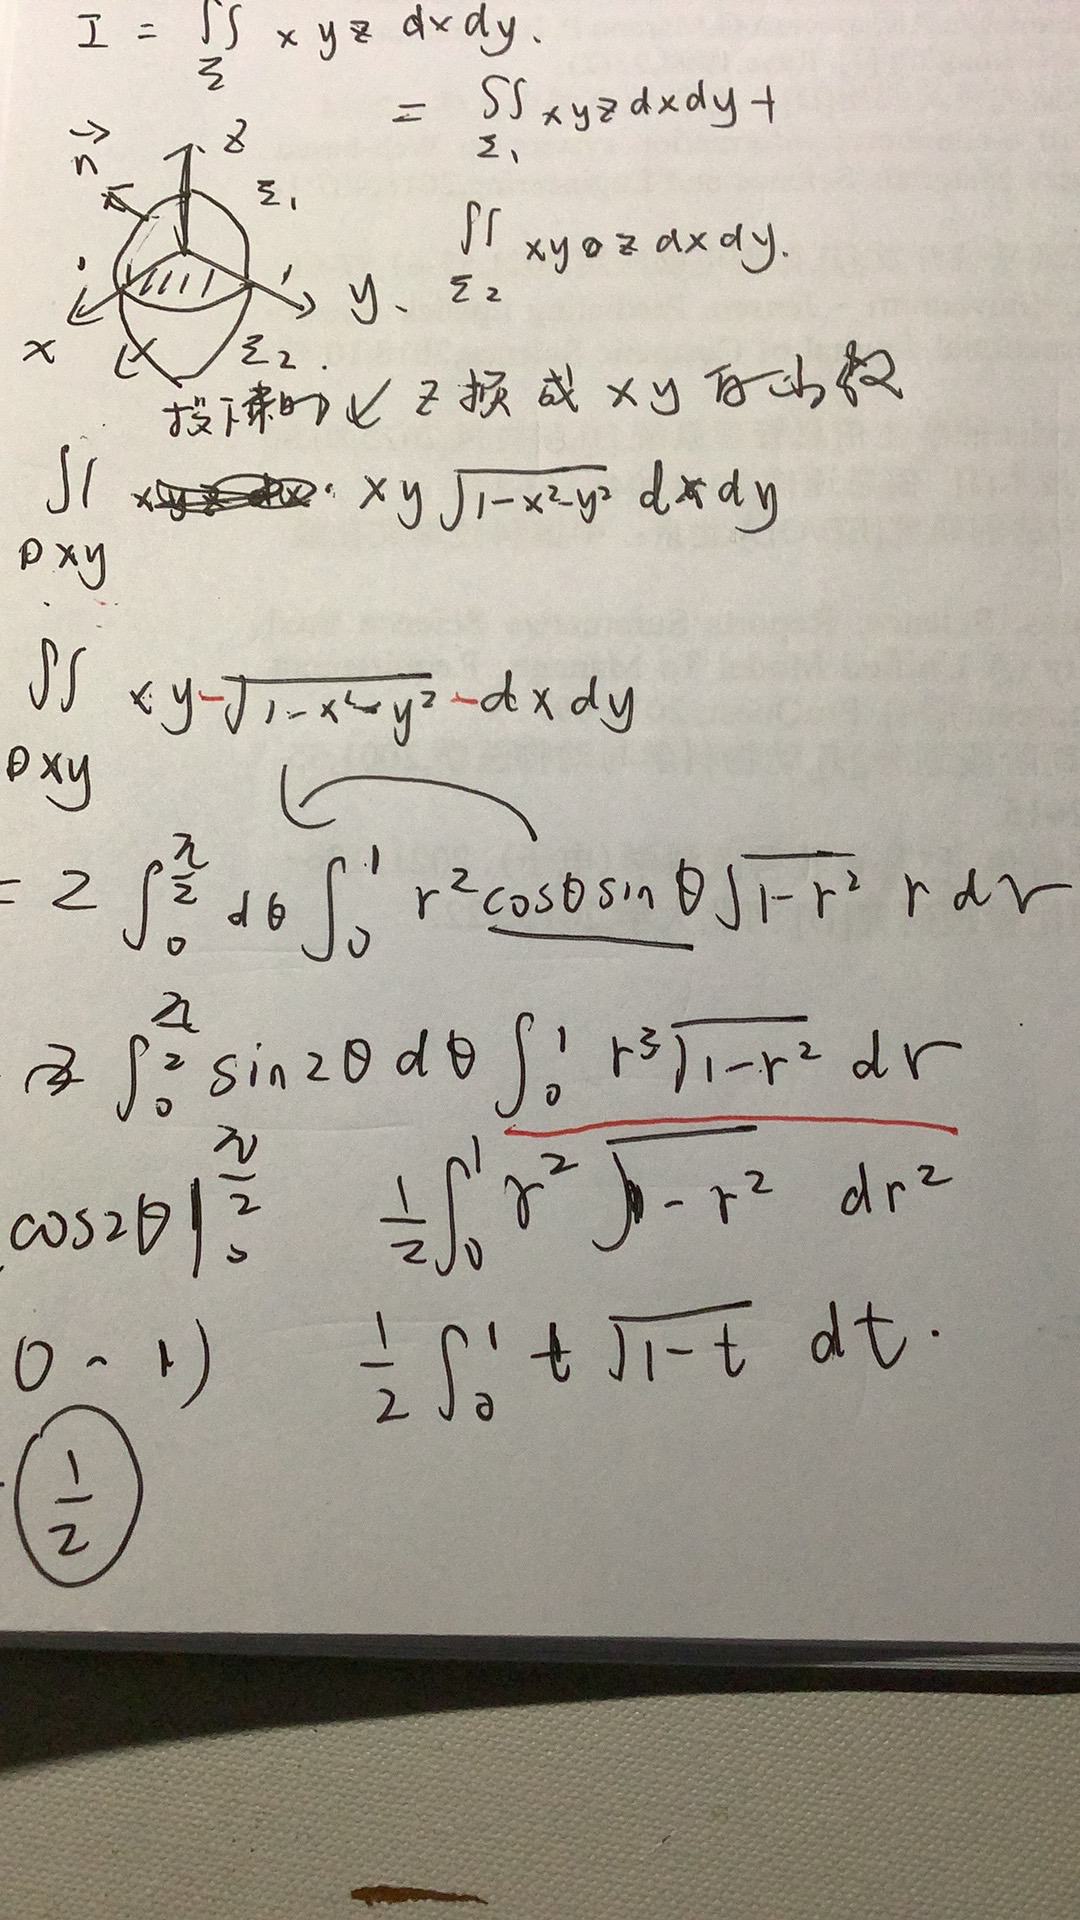 I = ∬ xyz dxdy.
Σ
= ∬ xyz dxdy +
Σ₁
n⃗
z
Σ₁
∬ xy z dxdy.
Σ₂
1
1
y.
x
Σ₂.
z 换成 xy 的函数
∬ xy√(1-x²-y²) dxdy
Dxy
∬ xy -√(1-x²-y²) - dxdy
Dxy
= 2 ∫₀^(π/2) dθ ∫₀¹ r² cosθ sinθ √(1-r²) r dr
∫₀^(π/2) sin2θ dθ ∫₀¹ r³√(1-r²) dr
cos2θ |₀^(π/2) 1/2 ∫₀¹ r² √(1-r²) dr²
0 - 1) 1/2 ∫₀¹ t √(1-t) dt.
1/2